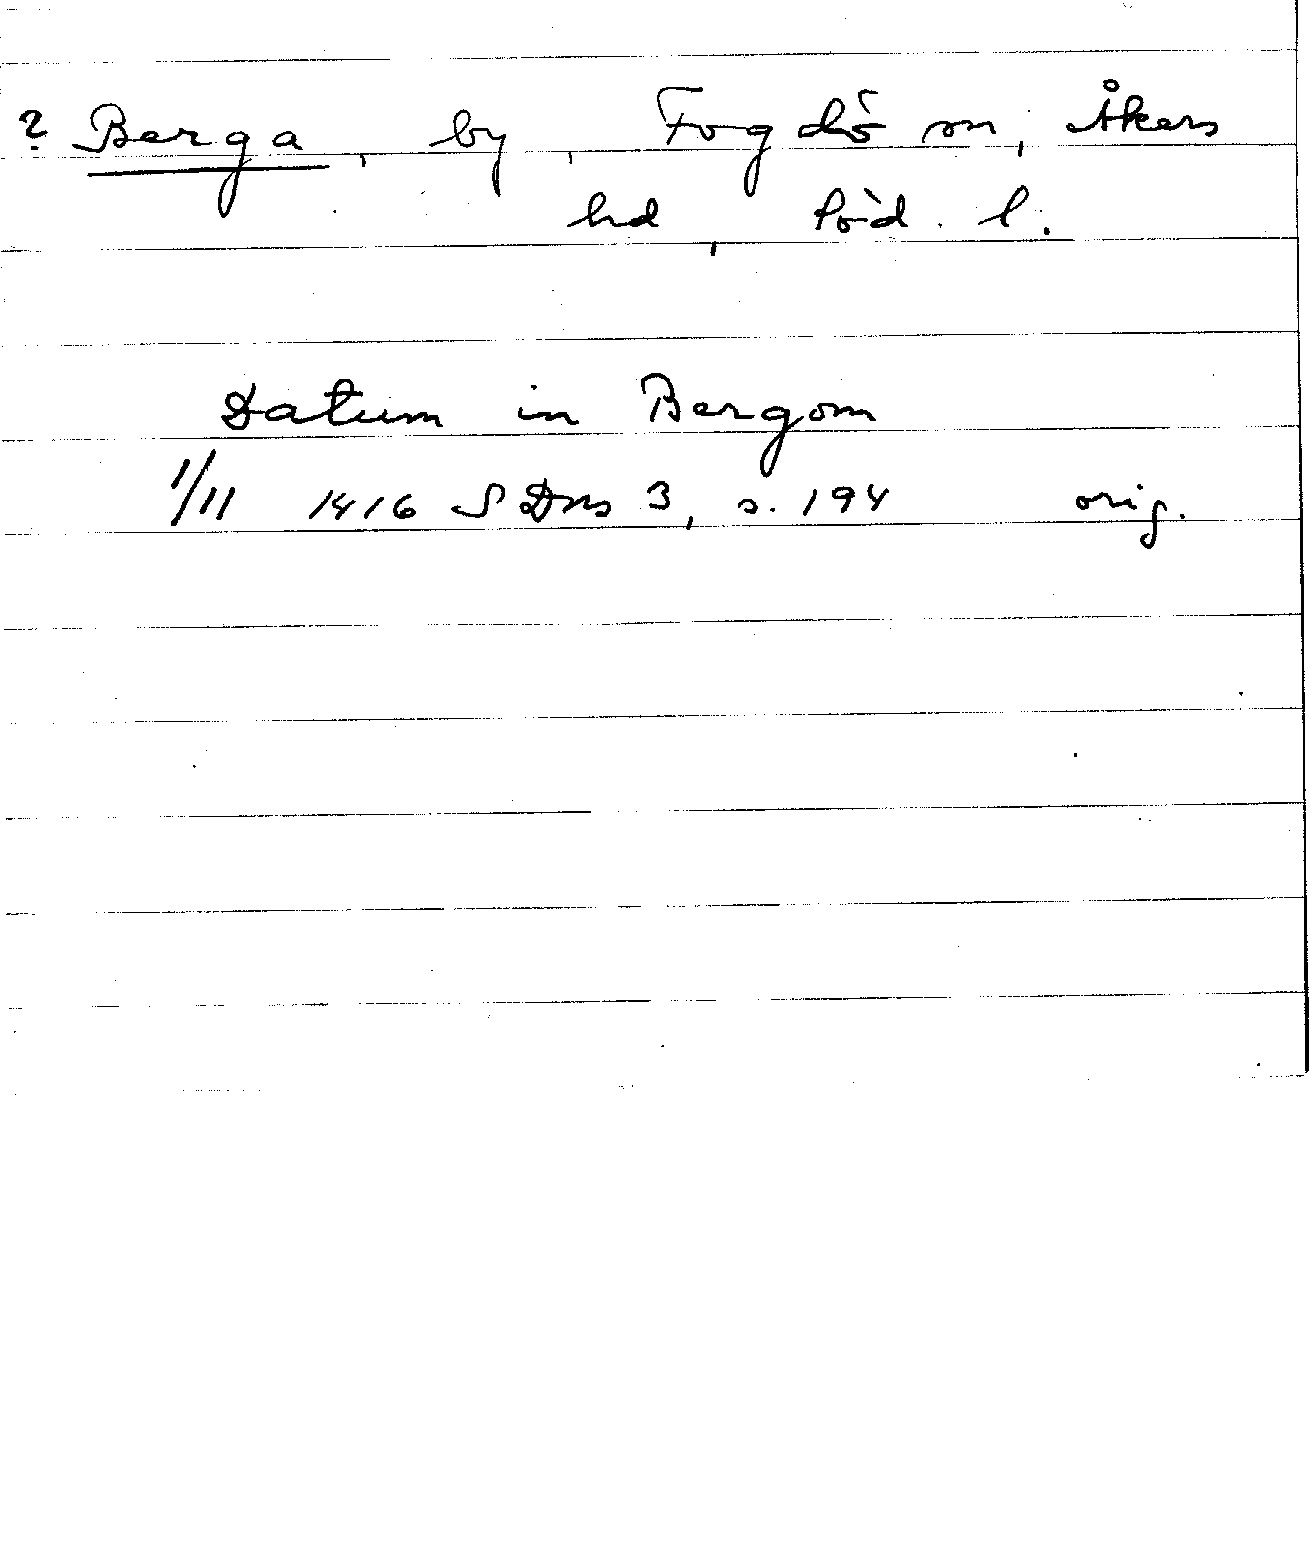 ? Berga, by, Fogdö sn, Åkers
hd, Söd. l.
Datum in Bergom
1/11 1416 SDns 3, s. 194 orig.